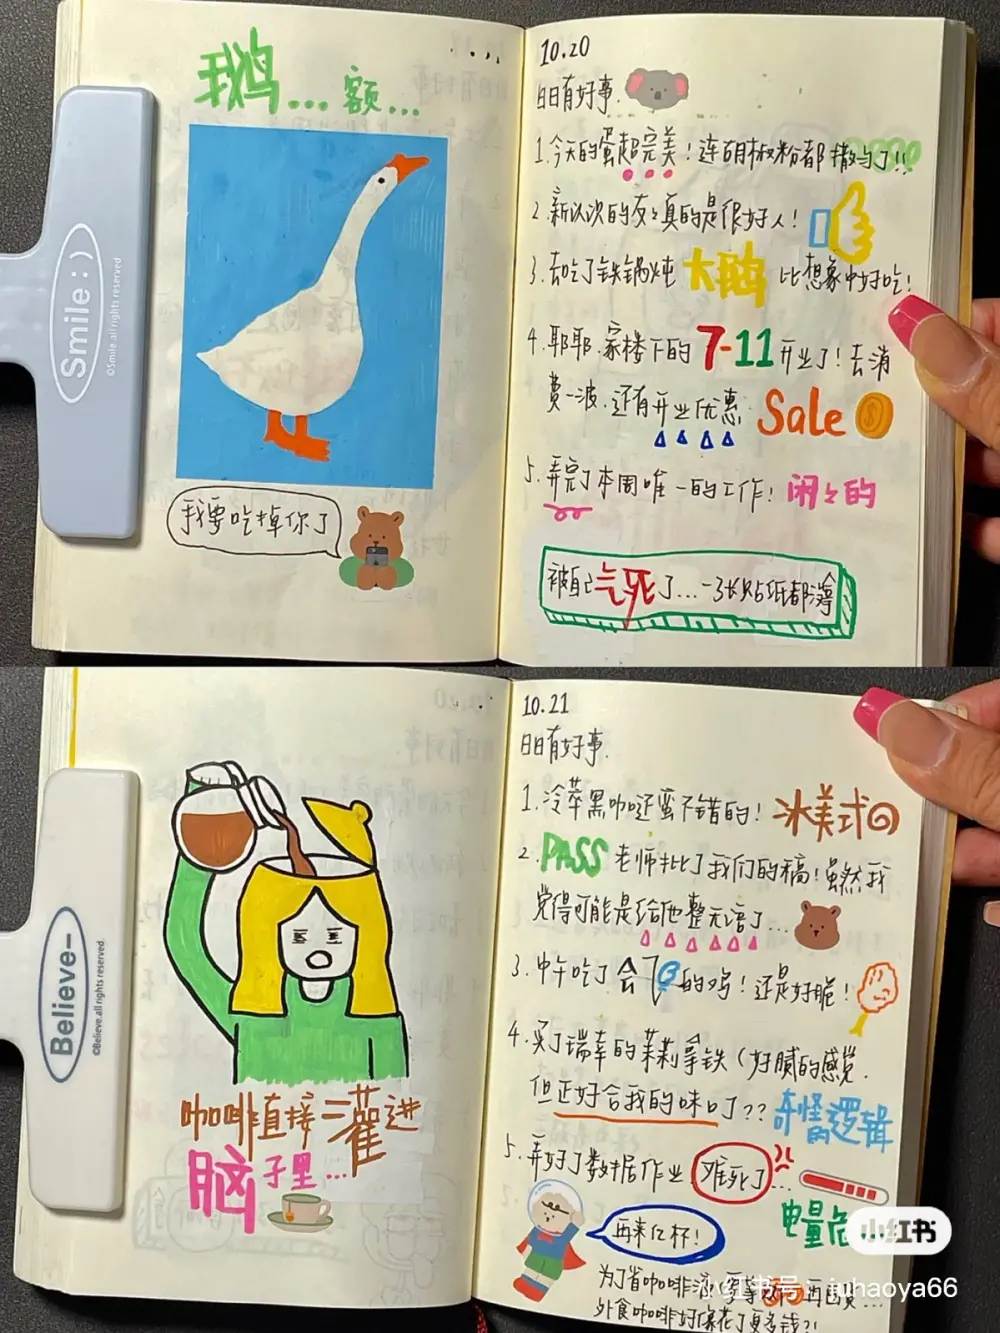 我鹅...额...
我要吃掉你了
Smile:)
©Smile.all rights reserved
10.20
日日有好事.
1.今天的蛋超完美!连胡椒粉都撒匀了!!
2.新认识的友友真的是很好人!
3.去吃了铁锅炖大鹅 比想象中好吃!
4.耶耶.家楼下的7-11开业了!去消
费一波.还有开业优惠 Sale
5.弄完了本周唯一的工作! 闲闲的
被自己气死了...一张贴纸都没
Believe-
©Believe.all rights reserved
咖啡直接灌进
脑子里...
10.21
日日有好事.
1.冷萃黑咖还蛮不错的! 冰美式
2.PASS 老师批了我们的稿!虽然我
觉得可能是给他整无语了...
3.中午吃了会飞的鸡!还是好脆!
4.买了瑞幸的茉莉拿铁(好腻的感觉.
但正好合我的味口了?? 奇怪的逻辑
5.弄好了数据作业.难死了...
电量
再来亿杯!
为了省咖啡液
外食咖啡好像花了更多钱?!
小红书
小红书号:juhaoya66